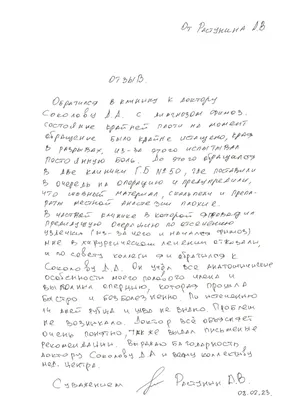 От Рагунина Д.В
ОТЗЫВ.
Обратился в клинику к доктору
Соколову Д.А. с диагнозом фимоз.
состояние крайней плоти на момент
обращения было крайне истощено, края
в разрывах, из-за этого испытывал
постоянную боль. До этого обращался
в две клиники Г.Б №50, где поставили
в очередь на операцию и предупредили,
что шовный материал, скальпели и препа-
раты местной анестезии плохие.
В частной клинике в которой проводил
предыдущую операцию по иссечению
уздечки (из-за чего и начался фимоз)
мне в хирургическом лечении отказали,
и по совету коллеги я обратился к
Соколову Д.А. Он учёл все анатомические
особенности моего полового члена и
выполнил операцию, которая прошла
быстро и безболезненно. По истечению
14 дней рубца и шва не видно. Проблем
не возникало. Доктор всё объясняет
очень понятно, также выдал письменные
рекомендации. Выражаю благодарность
доктору Соколову Д.А и всему коллективу
мед. центра.
С уважением Рагунин Д.В.
02.02.23.